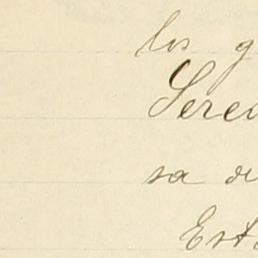 los g
Sere
sa
Est